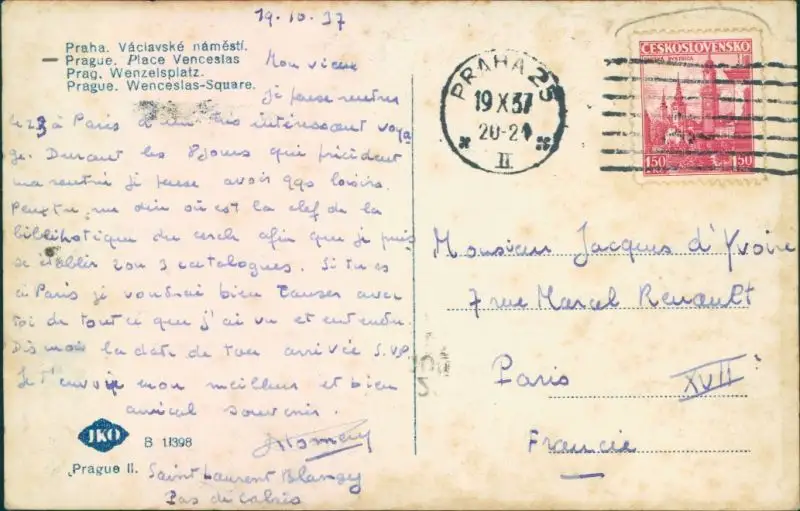 19.10.37
Praha. Václavské náměstí.
Prague. Place Venceslas
Prag. Wenzelsplatz.
Prague. Wenceslas-Square.
Mon vieux
je pense rentrer
le 23 à Paris d'un intéressant voya
ge. Durant les 8 jours qui précèdent
ma rentrée je pense avoir qqs loisirs.
Peux tu me dire où est la clef de la
bibliothèque du cercle afin que je puis
se établir 2 ou 3 catalogues. Si tu es
à Paris je voudrai bien causer avec
toi de tout ce que j'ai vu et entendu.
Dis moi la date de ton arrivée S.V.P.
Je t'envoie mon meilleur et bien
amical souvenir.
JKO
B 11398
Prague II.
Saint Laurent Blangy
Pas de Calais
PRAHA 25
19 X 37
20-24
II
ČESKOSLOVENSKO
150 150
Monsieur Jacques d'Yvoire
7 rue Marcel Renault
Paris XVII
Francie